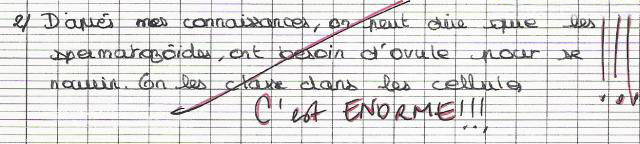 2/ D'après mes connaissances, on peut dire que les !!!
spermatozoïdes, ont besoin d'ovule pour se
nourrir. On les classe dans les cellules
C'est ENORME!!!